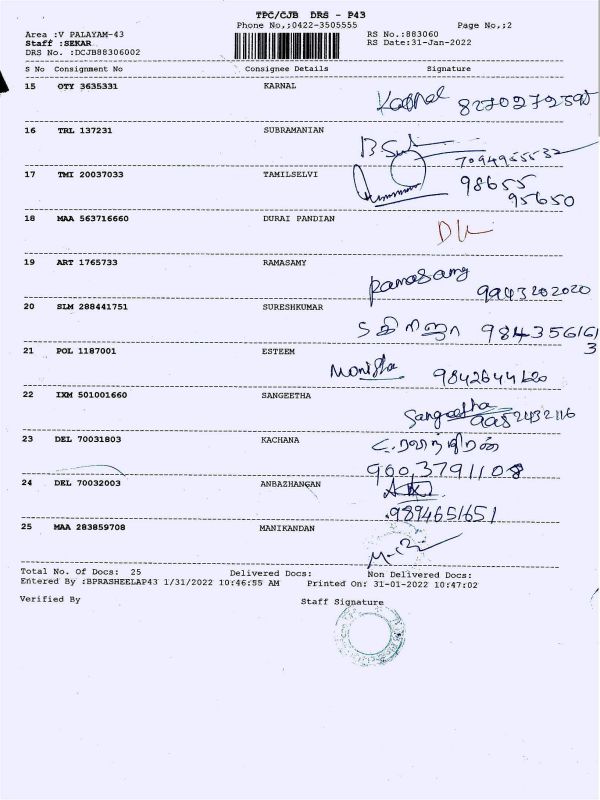 TPC/CJB DRS - P43
Phone No,;0422-3505555 Page No,;2
Area :V PALAYAM-43 RS No.:883060
Staff :SEKAR RS Date:31-Jan-2022
DRS No. :DCJB88306002
S No Consignment No Consignee Details Signature
15 OTY 3635331 KARNAL
Karnal
16 TRL 137231 SUBRAMANIAN
7094955532
17 TMI 20037033 TAMILSELVI
98655
95650
18 MAA 563716660 DURAI PANDIAN
19 ART 1765733 RAMASAMY
Ramasamy 9943202020
20 SLM 288441751 SURESHKUMAR
984356161
3
21 POL 1187001 ESTEEM
Monisha
22 IXM 501001660 SANGEETHA
Sangeetha
23 DEL 70031803 KACHANA
9003791108
24 DEL 70032003 ANBAZHANGAN
9894651651
25 MAA 283859708 MANIKANDAN
Total No. Of Docs: 25 Delivered Docs: Non Delivered Docs:
Entered By :BPRASHEELAP43 1/31/2022 10:46:55 AM Printed On: 31-01-2022 10:47:02
Verified By Staff Signature